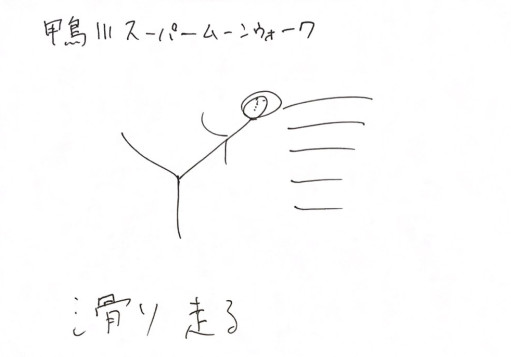 甲鳥川スーパームーンウォーク
滑り走る